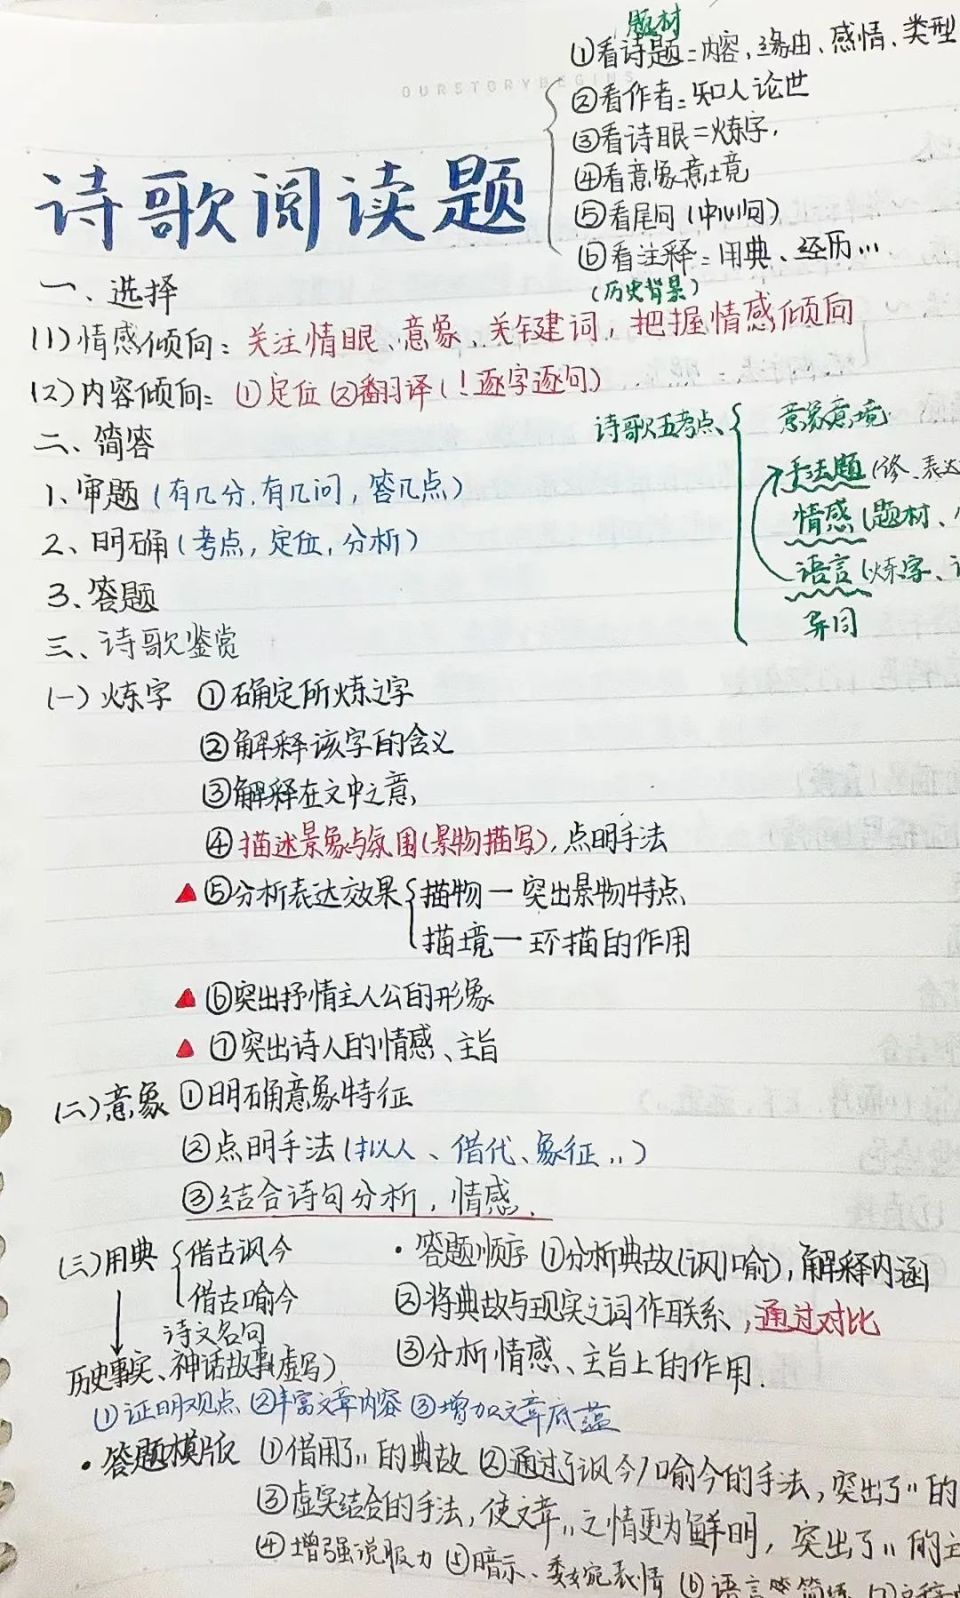 题材
①看诗题=内容、缘由、感情、类型
OURSTORYBEGINS
②看作者=知人论世
③看诗眼=炼字,
④看意象意境
⑤看尾句(中心句)
⑥看注释=用典、经历…
(历史背景)
诗歌阅读题
一、选择
(1)情感倾向: 关注情眼、意象、关键词,把握情感倾向
(2)内容倾向: ①定位②翻译(!逐字逐句)
诗歌五考点
意象意境
手法题(修、表达
情感(题材、
语言(炼字、
异同
二、简答
1、审题(有几分,有几问,答几点)
2、明确(考点,定位,分析)
3、答题
三、诗歌鉴赏
(一)炼字 ①确定所炼之字
②解释该字的含义
③解释在文中之意,
④描述景象与氛围(景物描写),点明手法
▲⑤分析表达效果 描物一突出景物特点
描境一环描的作用
▲⑥突出抒情主人公的形象
▲⑦突出诗人的情感、主旨
(二)意象 ①明确意象特征
②点明手法(拟人、借代、象征,,)
③结合诗句分析,情感.
(三)用典 借古讽今
借古喻今
诗文名句
历史事实、神话故事(虚写)
①证明观点 ②丰富文章内容 ③增加文章底蕴
·答题顺序 ①分析典故(讽|喻),解释内涵
②将典故与现实之词作联系,通过对比
③分析情感、主旨上的作用.
·答题模版 ①借用了,,的典故 ②通过了讽今/喻今的手法,突出了,,的
③虚实结合的手法,使文章,,之情更为鲜明,突出了,,的主
④增强说服力 ⑤暗示、委婉表情 ⑥语言 简练 ⑦